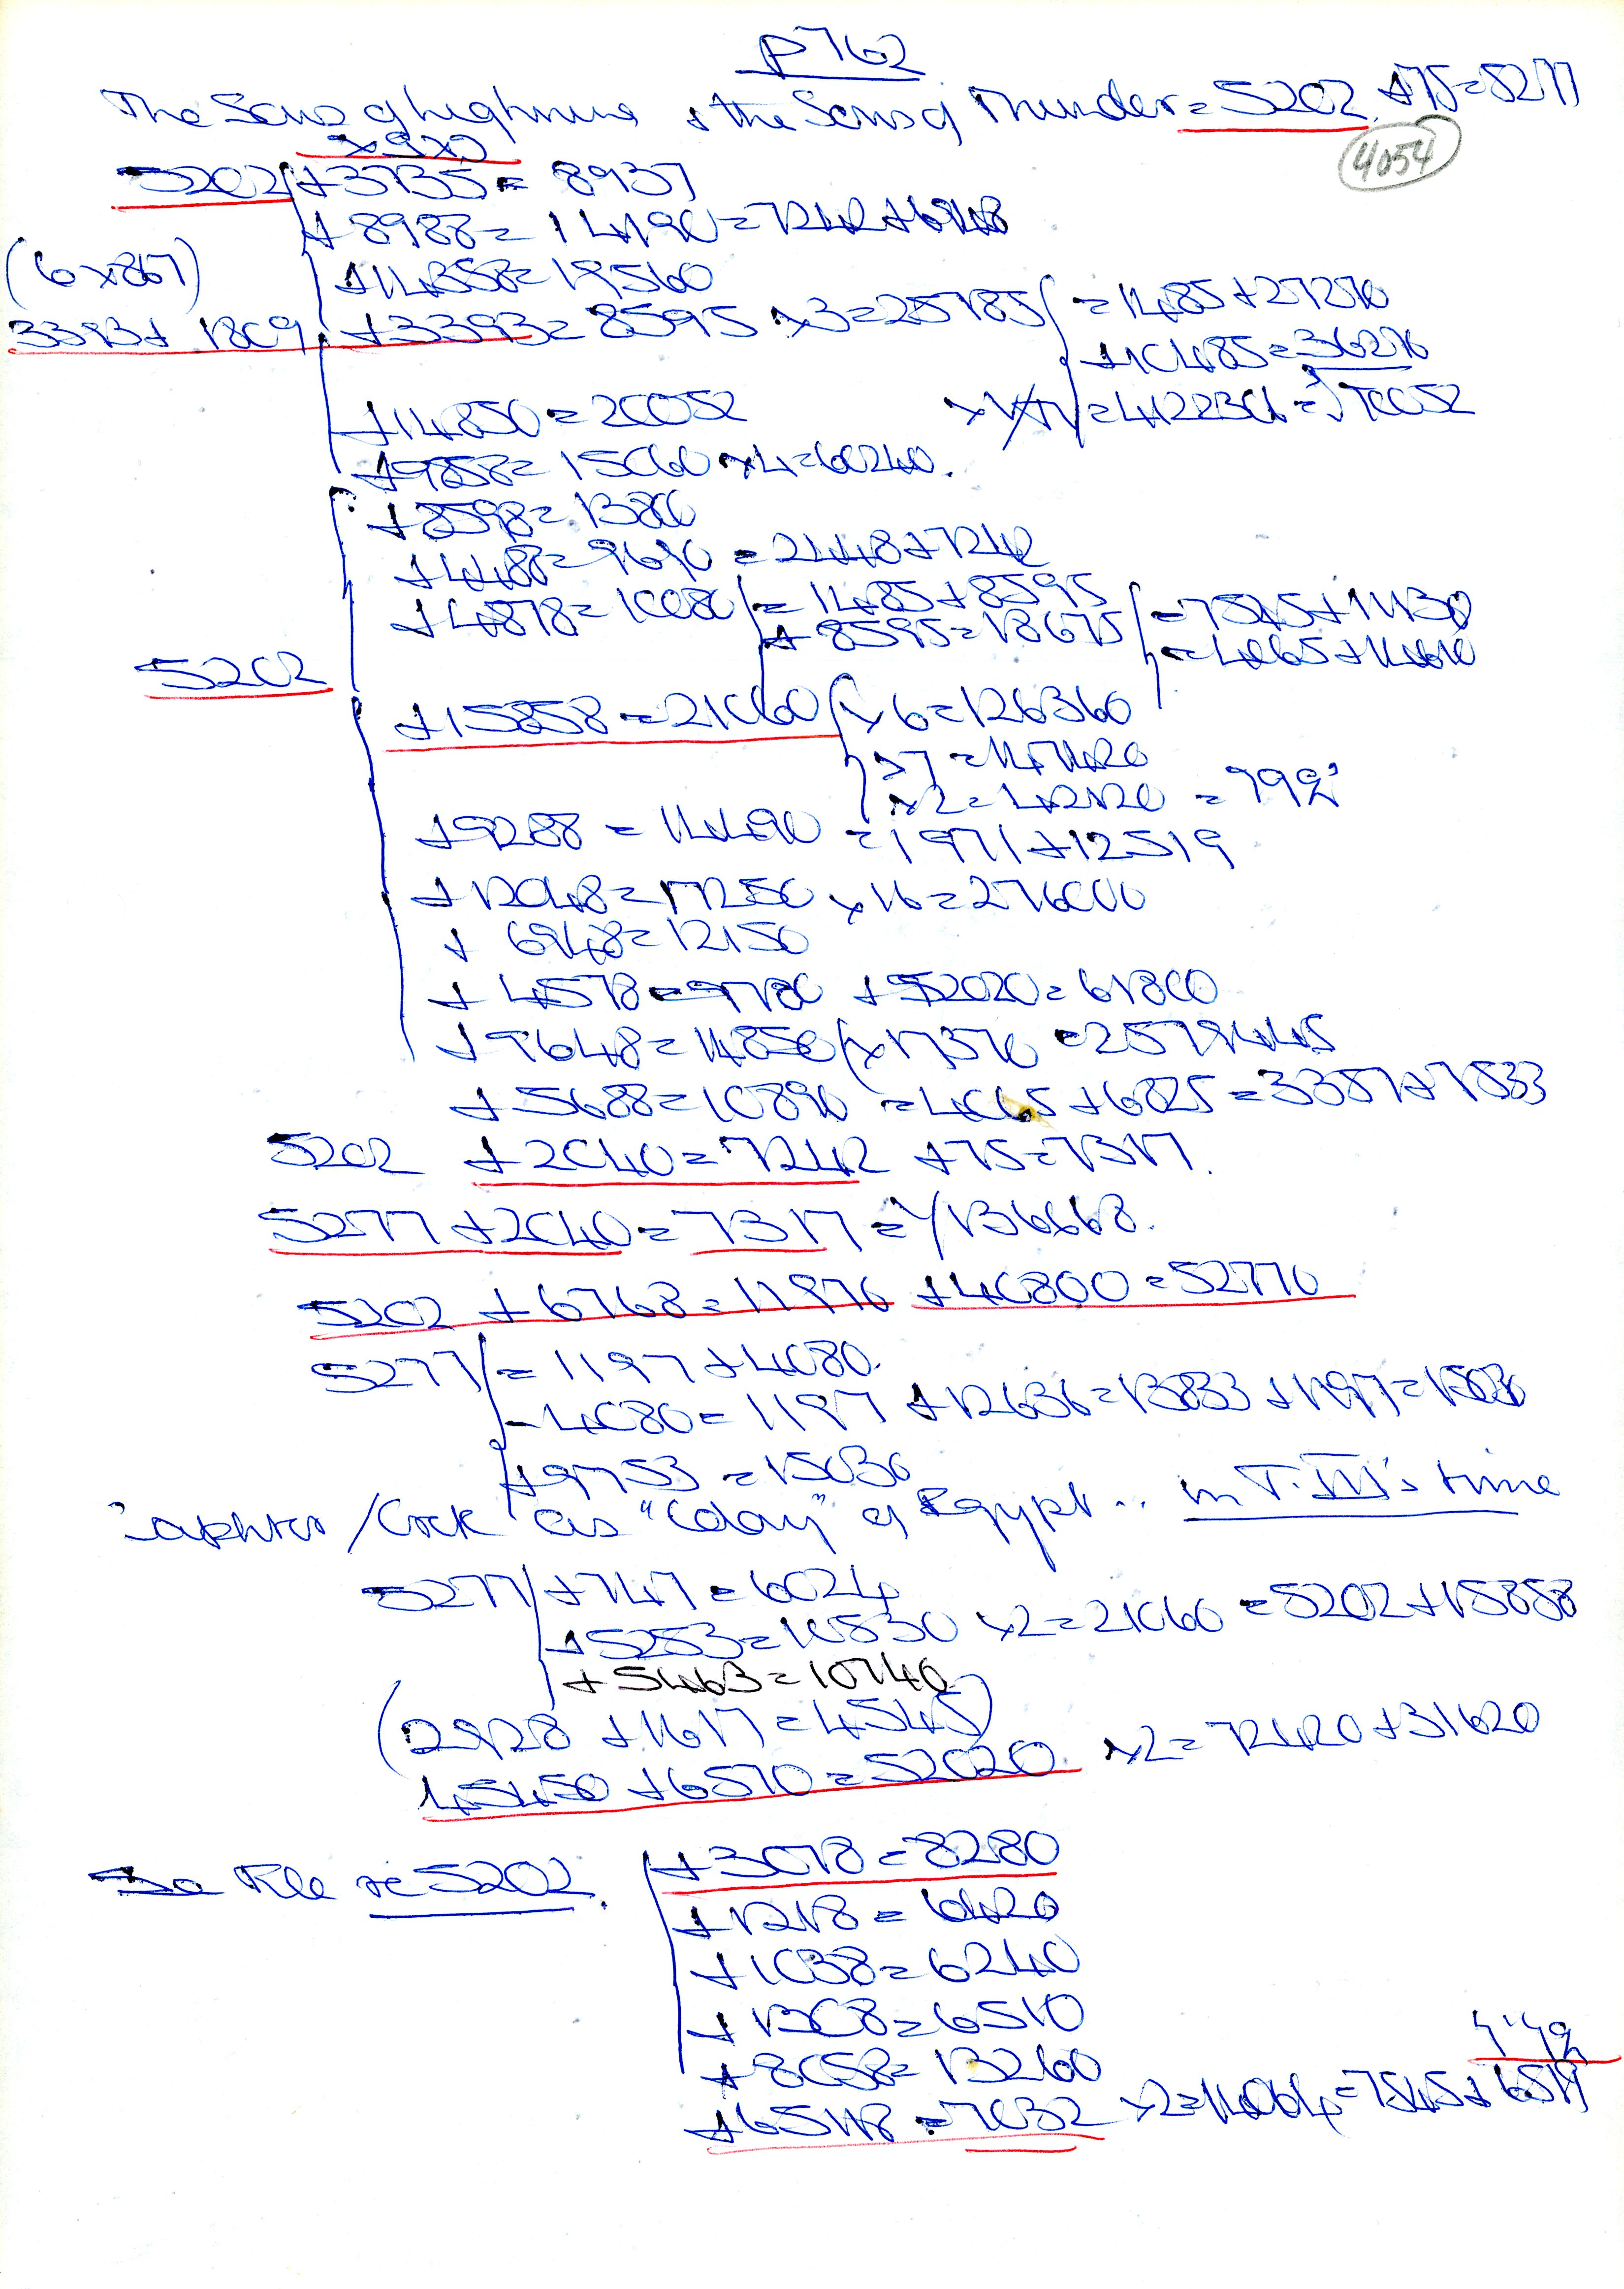 p762
The Sons of lightning & the Sons of Thunder = 5202. +75=5277
4054
5202 +3735 = 8937
+8988 = 14190 = 7242+6948
(6x867)
+14358=19560
3393+ 1809 +3393=8595 x3=25785 =1485+24300
+10485=36270
+14850=20052
+9858=15060 x4=60240.
+8598=13800
+4488=9690 =2448+7242
+4878=10080 = 1485+8595
+8595=18675 =7545+11130
=4065+14610
5202
+15858=21060 x6=126360
x7=147420
x2=42120 = 792'
+9288 = 14490 =1971+12519
+12048=17250 x16=276000
+ 6948=12150
+ 4578=9780 +52020=61800
+9648=14850
+5688=10890 =4065+6825=3357+7533
5202 +2040=7242 +75=7317.
5277+2040=7317
5202 +6768=11970 +40800=52770
5277 =1197+4080.
-4080=1197 +12636=13833 +1197=15030
+9753 =15030
/Cock as "(day" of Egypt .. in T.III's time
5277 +747=6024
+5253=10530 x2=21060 =5202+15858
+5463=10740
(2928 +1617=4545)
45450+6570=52020. x2= 72420+31620
File re 5202.
+3078=8280
+1218=6420
+1038=6240
+1308=6510
+8058=13260
=7032 x2=14064=7545+6519